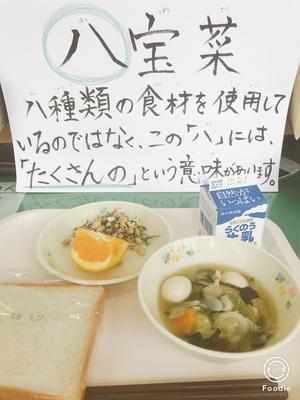 八宝菜
はっ ぽう さい
八種類の食材を使用して
いるのではなく、この「八」には、
「たくさんの」という意味があります。
自然が
いっぱい
らくのう
牛乳
5.27
Foodie